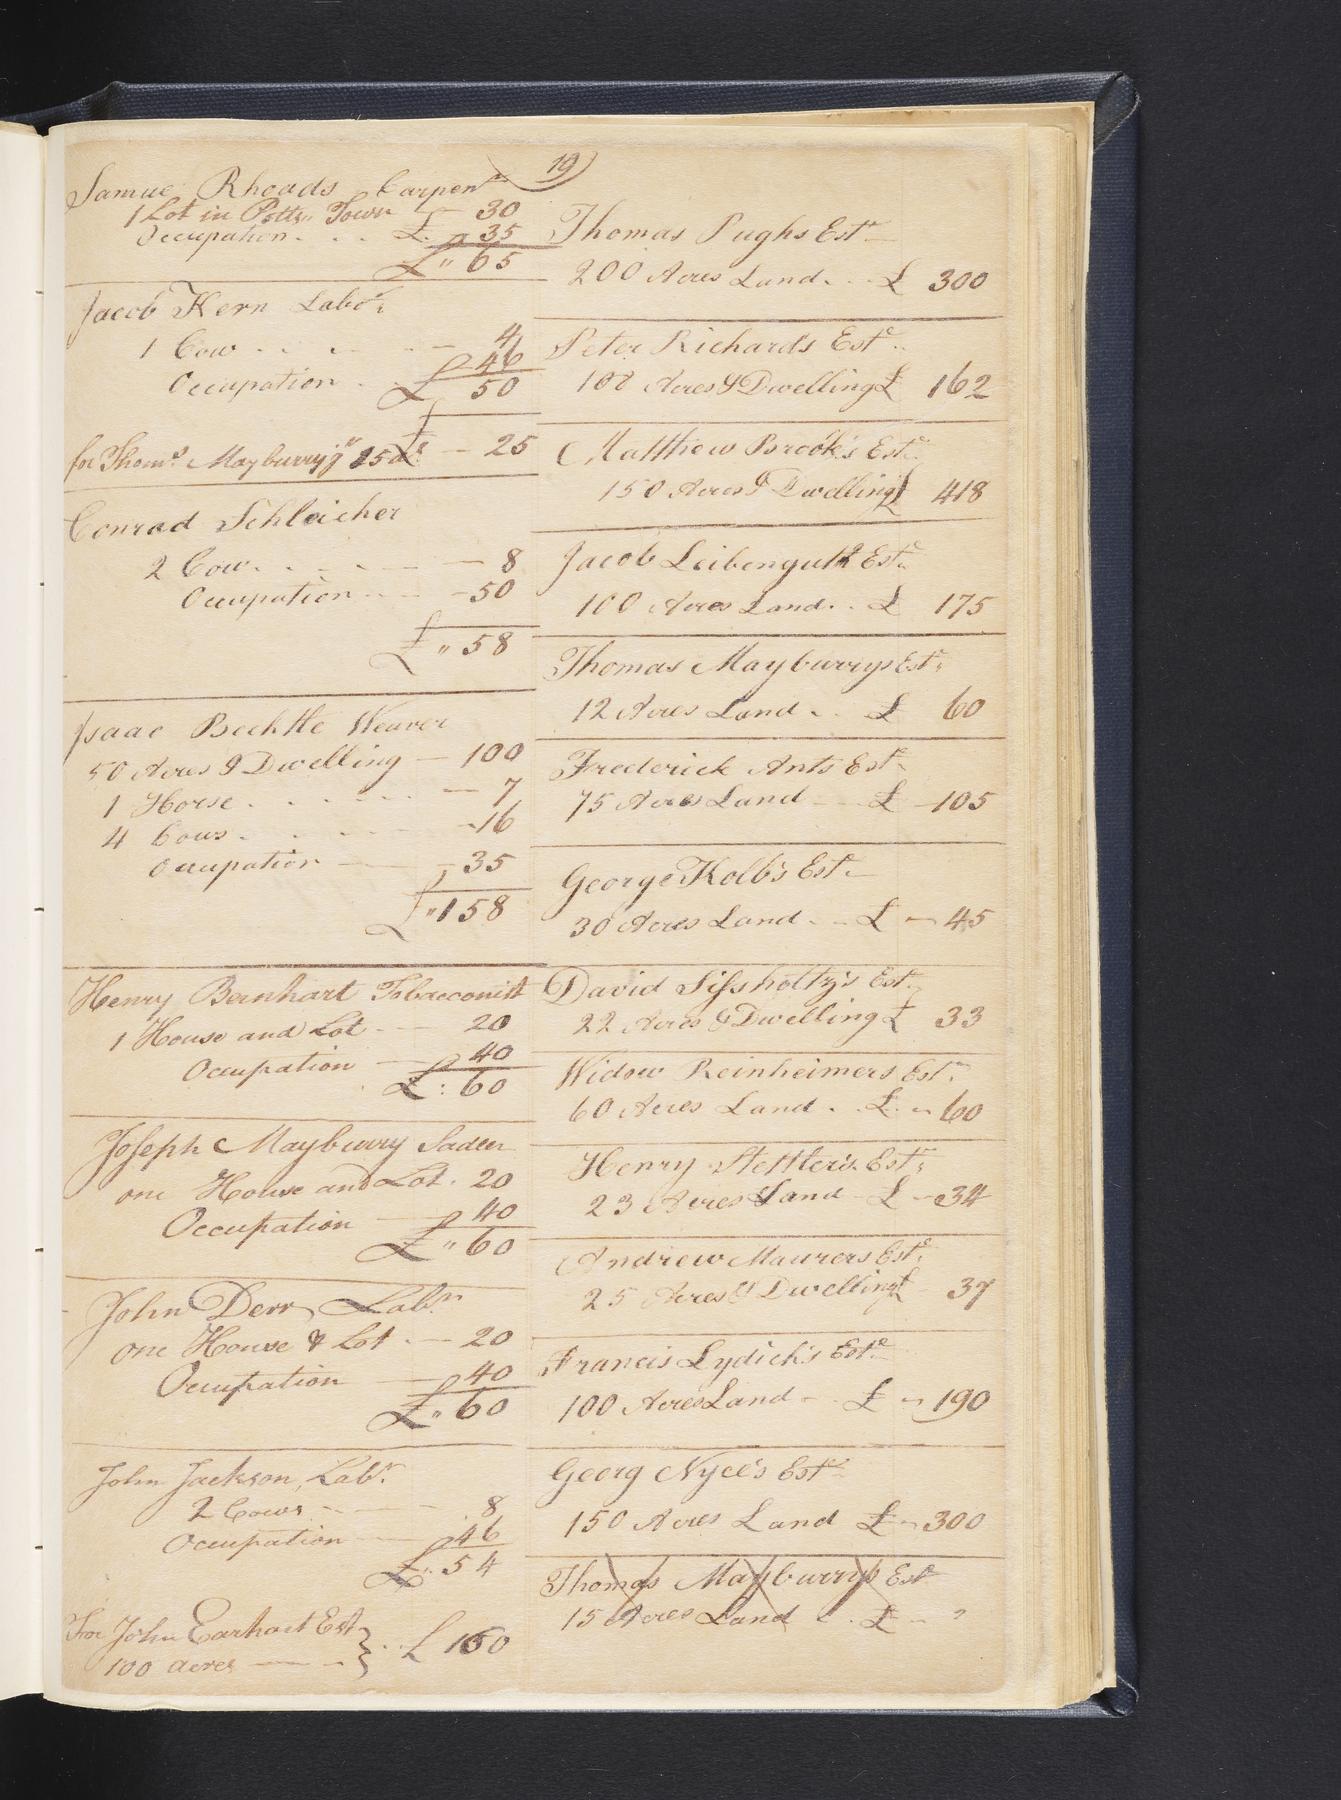 19
Samuel Rhoads Carpenr
1 Lot in Potts Town — 30
Occupation . . . £ 35
£ " 65
Jacob Kern Labor
1 Cow . . . — 4
Occupation . 46
£ 50
for Thoms. Mayburry jr 15 as — 25
Conrad Schleicher
2 Cow . . . — 8
Occupation — 50
£ " 58
Isaac Bechtle Weaver
50 Acres & Dwelling — 100
1 Horse . . . — 7
4 Cows . . . — 16
Occupation — 35
£ " 158
Henry Bernhart Tobacconist
1 House and Lot — 20
Occupation — 40
£ : 60
Joseph Mayburry Sadler
one House and Lot . 20
Occupation — 40
£ " 60
John Derr, Labr
one House & Lot . — 20
Occupation — 40
£ " 60
John Jackson, Labr.
2 Cows — 8
Occupation — 46
£ " 54
For John Earhart Est
100 acres — } . . £ 150
Thomas Pughs Este
200 Acres Land . . . £ 300
Peter Richards Este
108 Acres & Dwelling £ 162
Matthew Brook's Este
150 Acres & Dwelling £ 418
Jacob Leibenguth Este
100 Acres Land . . £ 175
Thomas Mayburrys Este
12 Acres Land . . £ 60
Frederick Ants Este
75 Acres Land — £ — 105
George Kolb's Este
30 Acres Land . . £ — 45
David Sissholtz's Este
22 Acres & Dwelling £ 33
Widow Reinheimers Este
60 Acres Land . . £ . — 60
Henry Stettler's Este
23 Acres Land — £ — 34
Andrew Maurers Este
25 Acres & Dwelling £ 37
Francis Lydick's Este
100 Acres Land — £ — 190
Georg Nyce's Este
150 Acres Land £ — 300
Thomas Mayburrys Est
15 Acres Land . . £